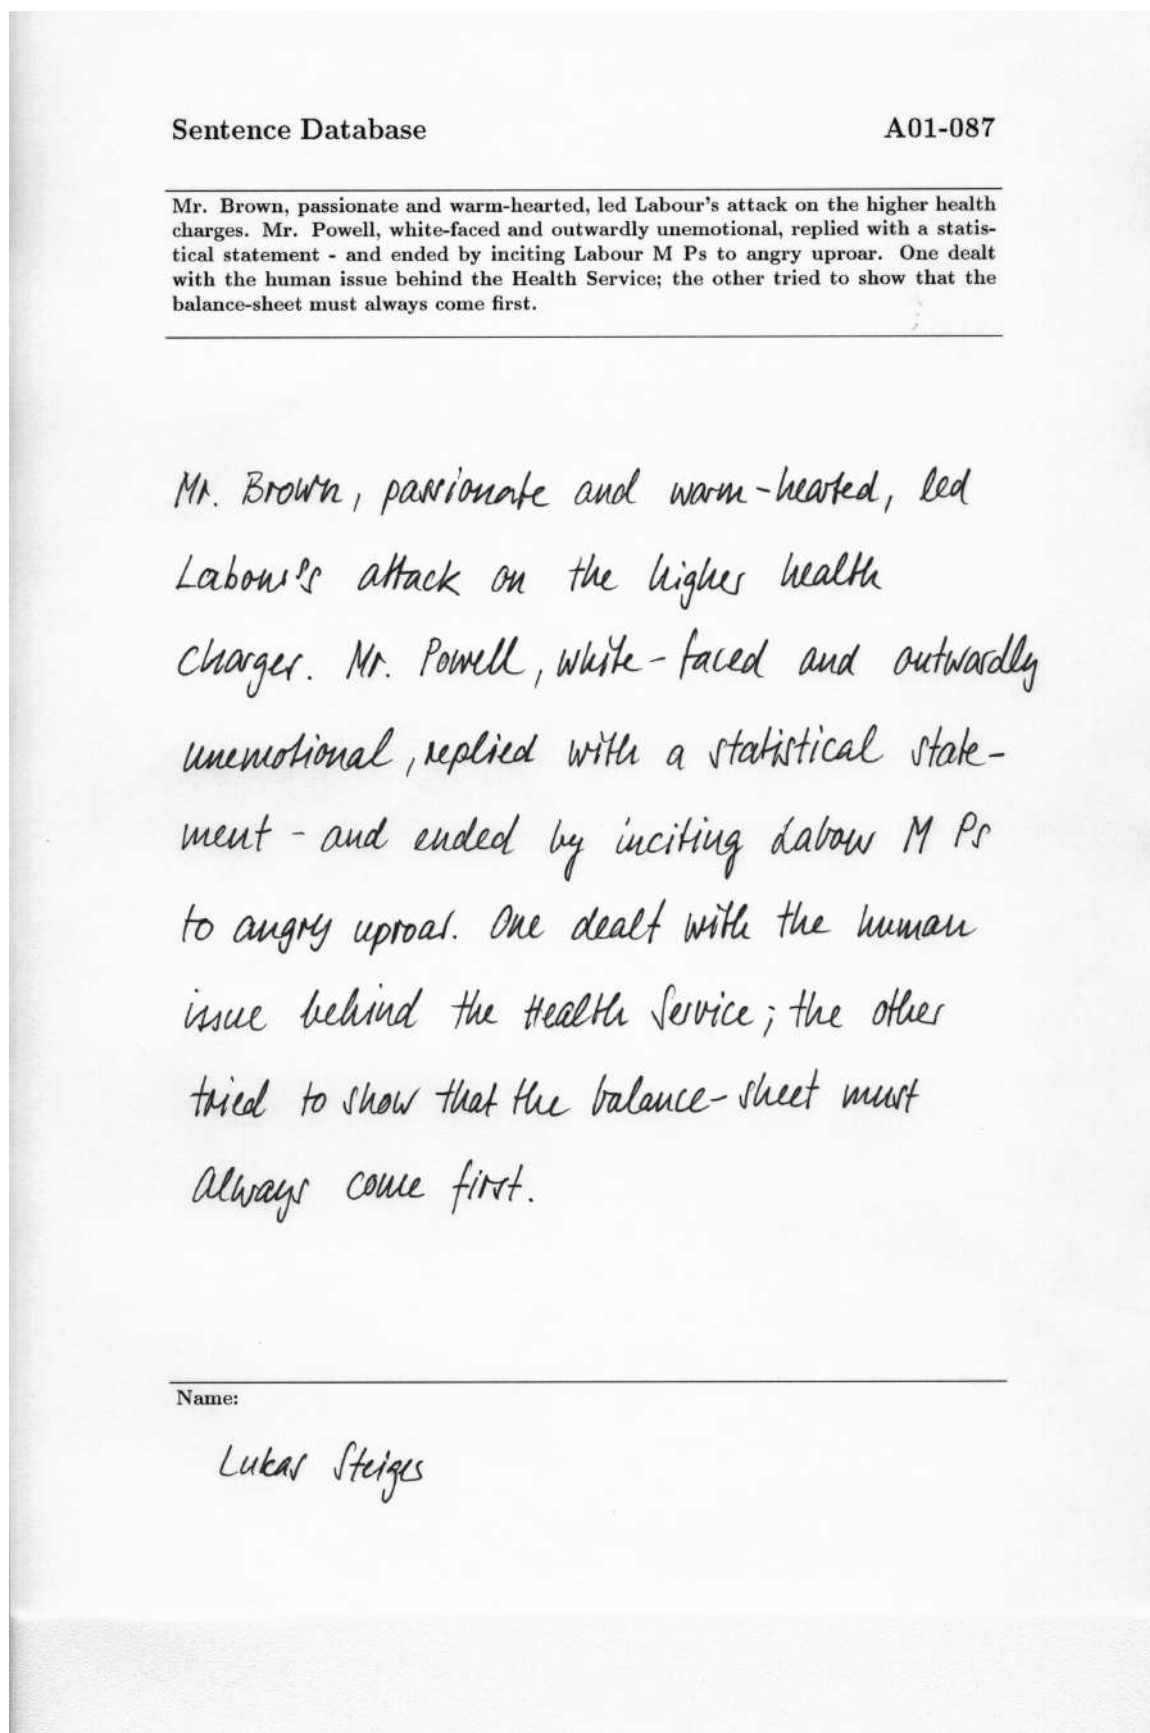 Sentence Database A01-087
Mr. Brown, passionate and warm-hearted, led Labour's attack on the higher health
charges. Mr. Powell, white-faced and outwardly unemotional, replied with a statis-
tical statement - and ended by inciting Labour M Ps to angry uproar. One dealt
with the human issue behind the Health Service; the other tried to show that the
balance-sheet must always come first.
Mr. Brown, passionate and warm-hearted, led
Labour's attack on the higher health
charges. Mr. Powell, white-faced and outwardly
unemotional, replied with a statistical state-
ment - and ended by inciting Labour M Ps
to angry uproar. One dealt with the human
issue behind the Health Service; the other
tried to show that the balance-sheet must
always come first.
Name:
Lukas Steiger